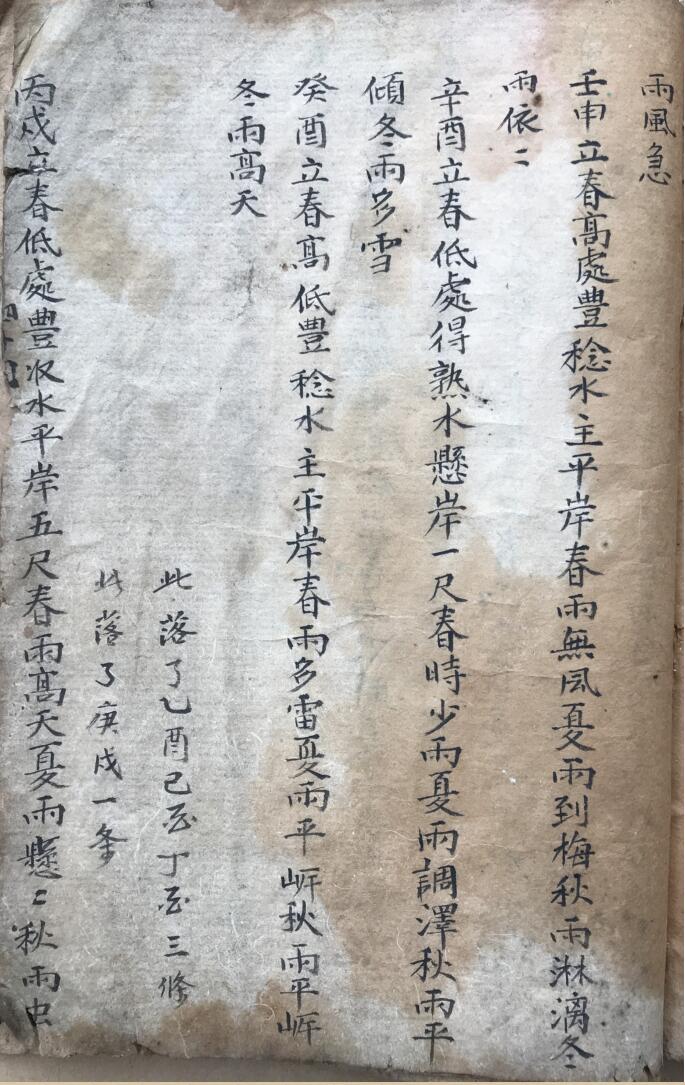 雨風急
壬申立春高處豐稔水主平岸春雨無風夏雨到梅秋雨淋漓冬
雨依〻
辛酉立春低處得熟水懸岸一尺春時少雨夏雨調澤秋雨平
傾冬雨多雪
癸酉立春高低豐稔水主平岸春雨多雷夏雨平岍秋雨平岍
冬雨高天
此落了乙酉己丁三條
此落了庚戍一条
丙戍立春低處豊収水平岸五尺春雨高天夏雨懸〻秋雨虫